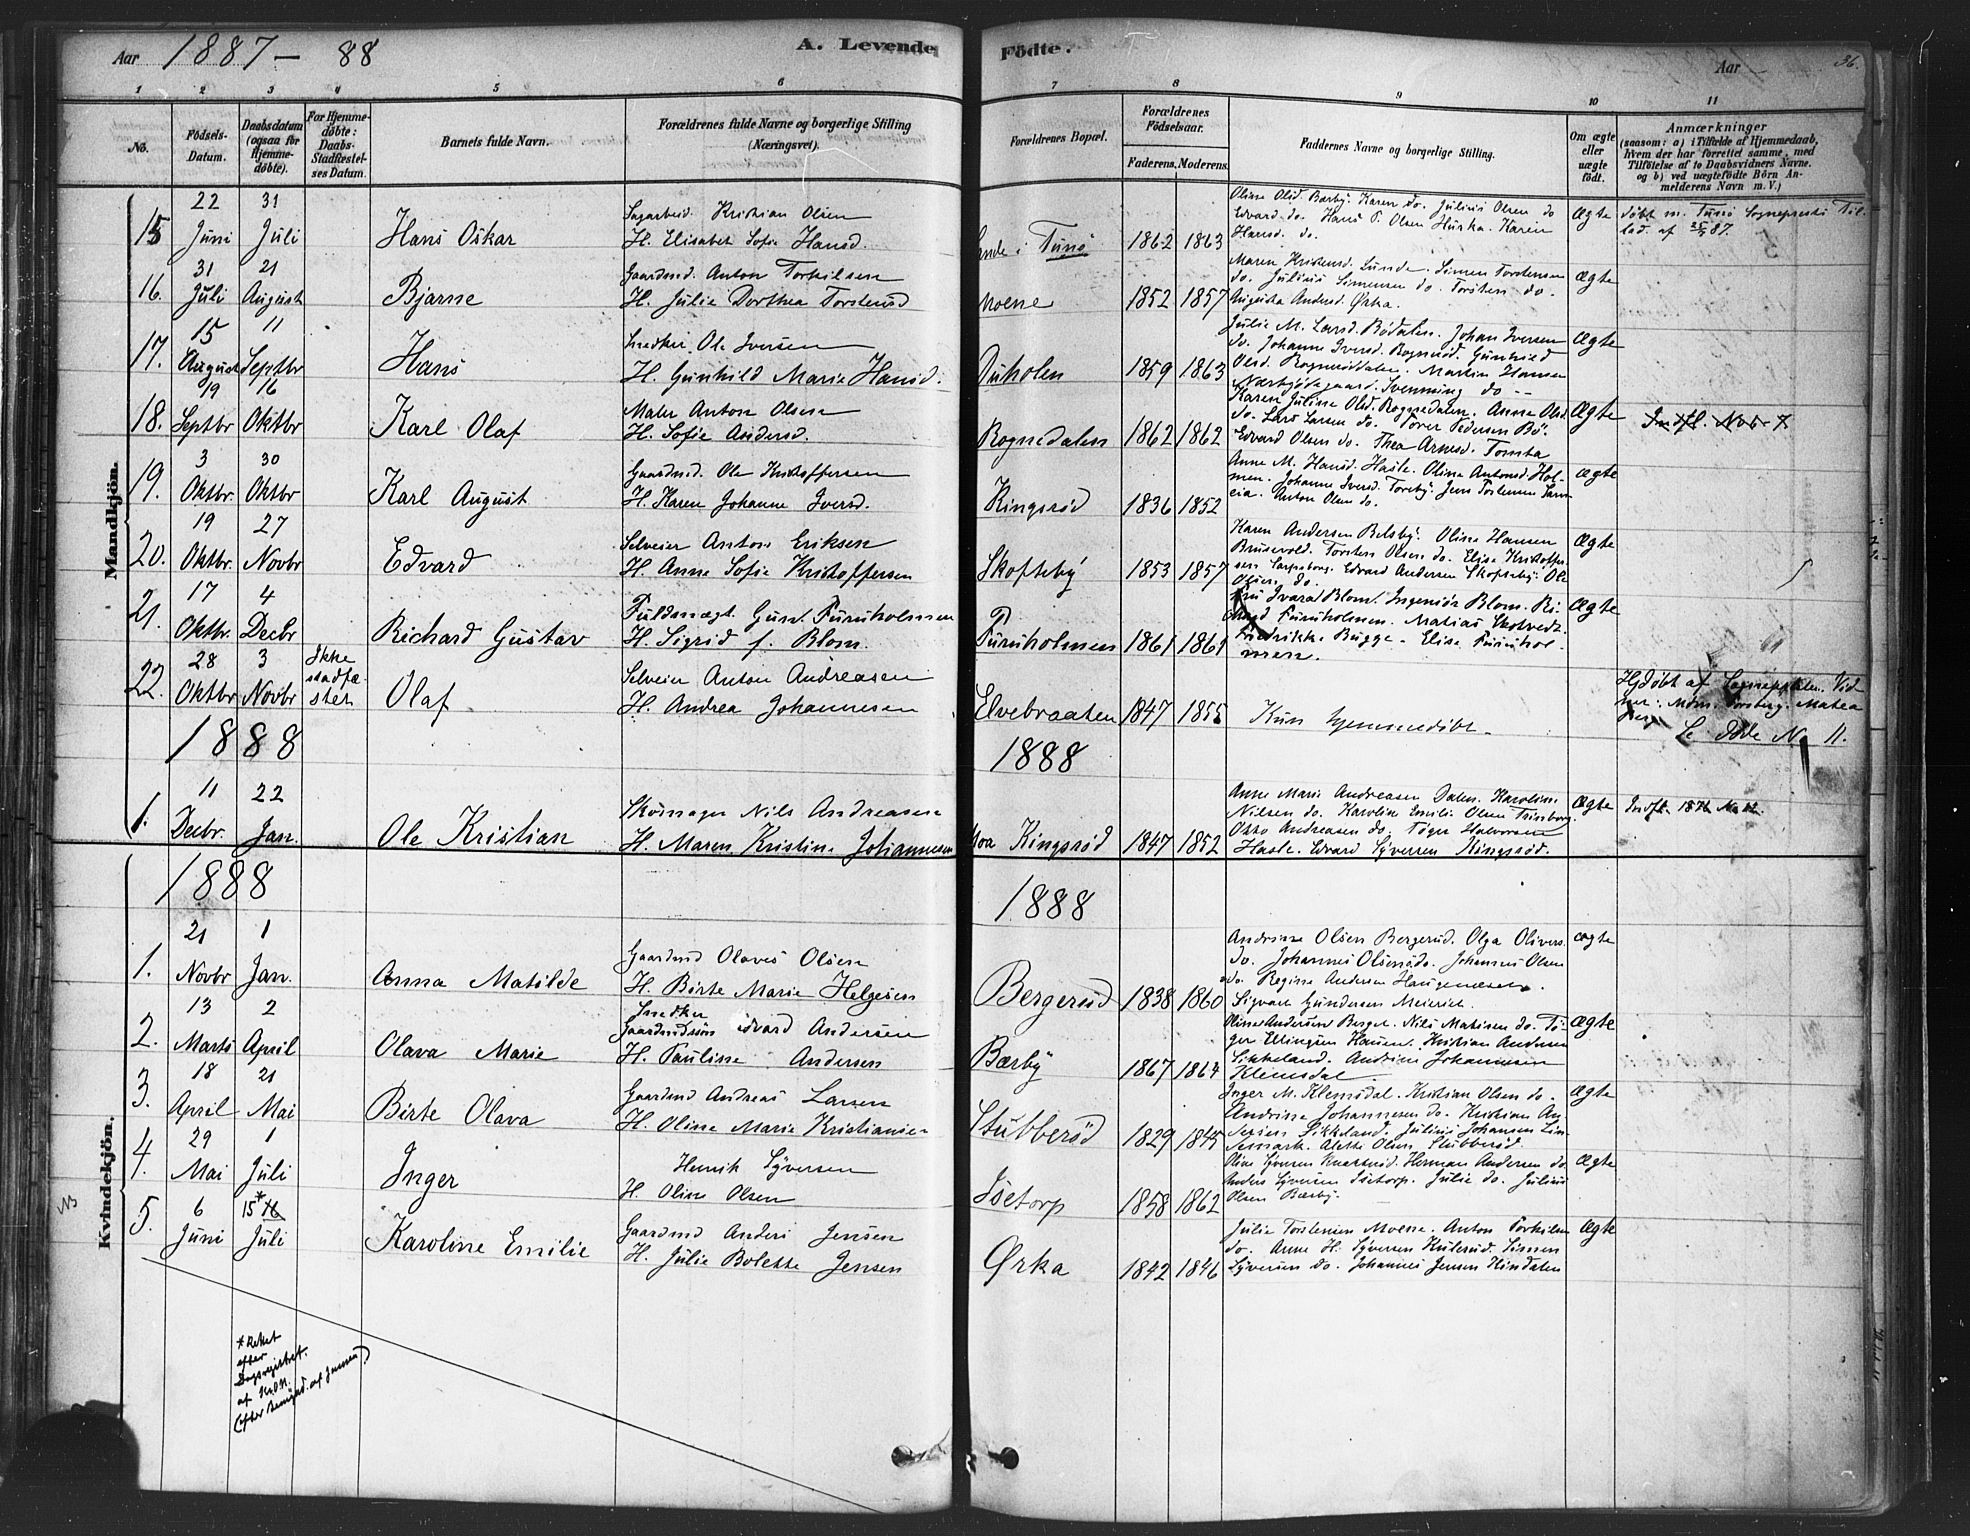 Aar 1887 — 88
A. Levende Födte.
Aar
36.
1 2 3 4 5 6 7 8 9 10 11
No.
Födsels-Datum.
Daabsdatum (ogsaa for Hjemme-döbte).
For Hjemme-döbte: Daabs-Stadfæstel-ses Datum.
Barnets fulde Navn.
Forældrenes fulde Navne og borgerlige Stilling (Næringsvei).
Forældrenes Bopæl.
Forældrenes Födselsaar.
Faderens. Moderens.
Faddernes Navne og borgerlige Stilling.
Om ægte eller uægte födt.
Anmærkninger
(saasom: a) i Tilfælde af Hjemmedaab, hvem der har forrettet samme, med Tilföielse af to Daabsvidners Navne. og b) ved uægtefödte Börn An-melderens Navn m. V.)
Mandkjön.
15 22 Juni 31 Juli Hans Oskar
Sagarbeid. Kristian Olsen
H. Elisabet Sofie Hansd.
i Tunø 1862 1863
Oline Olsd. Bærby. Karen do. Julius Olsen do
Edvard do. Hans P. Olsen Hurka. Karen
Hansd. do.
Ægte
døbt m. Tunø Sogneprests Til-
lad. af 87.
16. 31 Juli 21 August Bjarne
Gaardmd. Anton Torkilsen
H. Julie Dorthea Torstensd
Moene 1852 1857
Maren Kristensd. Lunde. Simen Torstensen
do. Julius Simensen do. Torsten do.
Augusta Andersd. Ørka.
Ægte
17. 15 August 11 Septbr Hans
Snedker Ole Iversen
H. Gunhild Marie Hansd.
Duholen 1859 1863
Julie M. Larsd. Bødalen. Johan Iversen
do. Johanne Iversd. Rognerød. Gunhild
Olsd. Rognerøddalen. Martin Hansen
Nærbjødegaard. Svenning do --
Ægte
18. 19 Septbr 16 Oktbr Karl Olaf
Maler Anton Olsen
H. Sofie Andersd.
Rognedalen 1862 1862
Karen Juline Olsd. Rognedalen. Anne Olsd.
do. Lars Larsen do. Torer Pedersen Bö.
Edvard Olsen do. Thea Arnesd. Tomta
Ægte
Indfl. Nov. 7
19. 3 Oktbr. 30 Oktbr Karl August
Gaardmd. Ole Kristoffersen
H. Karen Johanne Iversd.
Kingsrød 1836 1852
Anne M. Hansd. Hasle. Oline Antonsd. Hol-
men. Johanne Iversd. Toreby. Jens Torstensen
Anton Olsen do.
Ægte
20. 19 Oktbr. 27 Novbr Edvard
Selveier Anton Eriksen
H. Anne Sofie Kristoffersen
Skofteby 1853 1857
Karen Andersen Belsby. Oline Hansen
Brusevold. Torsten Olsen do. Elise Kristoffer-
sen Sarpsborg. Edvard Andersen Skofteby. Ole
Olsen do.
Ægte
21. 17 Oktbr. 4 Decbr Richard Gustav
Fuldmægt. Gust. Furuholmen
H. Sigrid f. Blom.
Furuholmen 1861 1861
Fru Ivara Blom. Ingeniør Blom. Ri-
chard Furuholmen. Matias Skotvedt.
Fredrikke Bugge. Elise Furuhol-
men.
Ægte
22. 28 Oktbr 3 Novbr Ikke stadfæ-stet Olaf
Selveier Anton Andreasen
H. Andrea Johannesen
Elvebraaten 1847 1855
Kun hjemmedøbt.
Hjdøbt af Sogneprsten. Vid
ner: Mdm. Forsberg. Matea
Se døde No 11.
1888
1888
1. 11 Decbr. 22 Jan. Ole Kristian
Skomager Nils Andreasen
H. Maren Kristine Johannesen
Moa Kingsrød 1847 1852
Anne Marie Andreasen Dalen. Karoline
Nilsen do. Karoline Emilie Olsen Trinborg.
Otto Andreasen do. Tøger Halvorsen
Hasle. Edvard Syversen Kingsrød.
Ægte
Indfl. 1876 No 12.
1888
1888
Kvindekjön.
1. 21 Novbr 1 Jan. Anna Matilde
Gaardmd Olaves Olsen
H. Birte Marie Helgesen
Bergerød 1838 1860
Andrine Olsen Bergerud. Olga Olivers.
do. Johannes Olsen do. Johannes Olsen
do. Regine Andersen Haugenæsen.
Sigvart Gundersen Meieriet.
ægte
2. 13 Marts 2 April Olava Marie
Snedker
Gaardmdsøn Edvard Andersen
H. Pauline Andersen
Bærby 1867 1864
Oline Andersen Berget. Nils Matisen do. Tø-
ger Ellingsen Hauen. Kristian Andersen
Sikkeland. Andrine Johannesen
Klemsdal
Ægte
3. 18 April 21 Mai Birte Olava
Gaardmd Andreas Larsen
H. Oline Marie Kristiansen
Stubberød 1829 1845
Inger M. Klemsdal. Kristian Olsen do.
Andrine Johannesen do. Kristian An-
dersen Sikkeland. Julius Johansen Lin-
nemark. Alette Olsen Stubberød.
Ægte
4. 29 Mai 1 Juli Inger
Henrik Syversen
H. Oline Olsen
Isetorp 1858 1862
Oline Syversen Knatterød. Herman Andersen do
Anders Syversen Isetorp. Julie do. Julius
Olsen Bærby.
Ægte
NB 5. 6 Juni 15* 16 Juli Karoline Emilie
Gaardmd Anders Jensen
H. Julie Bolette Jensen
Ørka 1842 1846
Julie Torstensen Moene. Anton Torkilsen
do. Anne H. Syversen Hulerud. Simen
Syversen do. Johannes Jensen Hindalen
Ægte
* Rettet
efter
Dagsregistret.
af
(efter af Jensen)